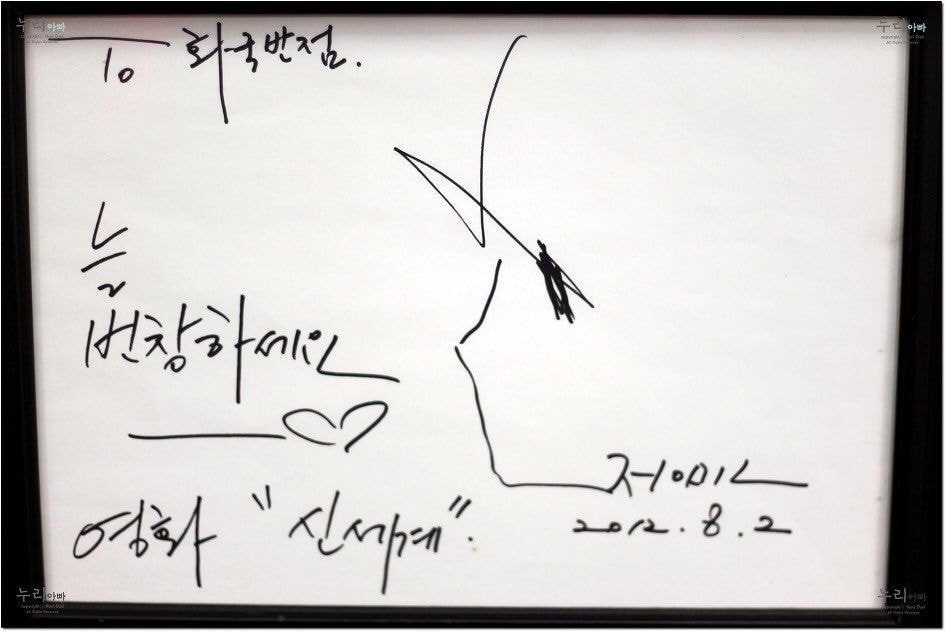 누리아빠
copyright ⓒ Nuri Dad
All Rights Reserved
누리아빠
copyright ⓒ Nuri Dad
All Rights Reserved
To 화국반점.
늘
번창하세요
정민
2012. 8. 2
영화 "신세계".
누리아빠
copyright ⓒ Nuri Dad
All Rights Reserved
누리아빠
copyright ⓒ Nuri Dad
All Rights Reserved